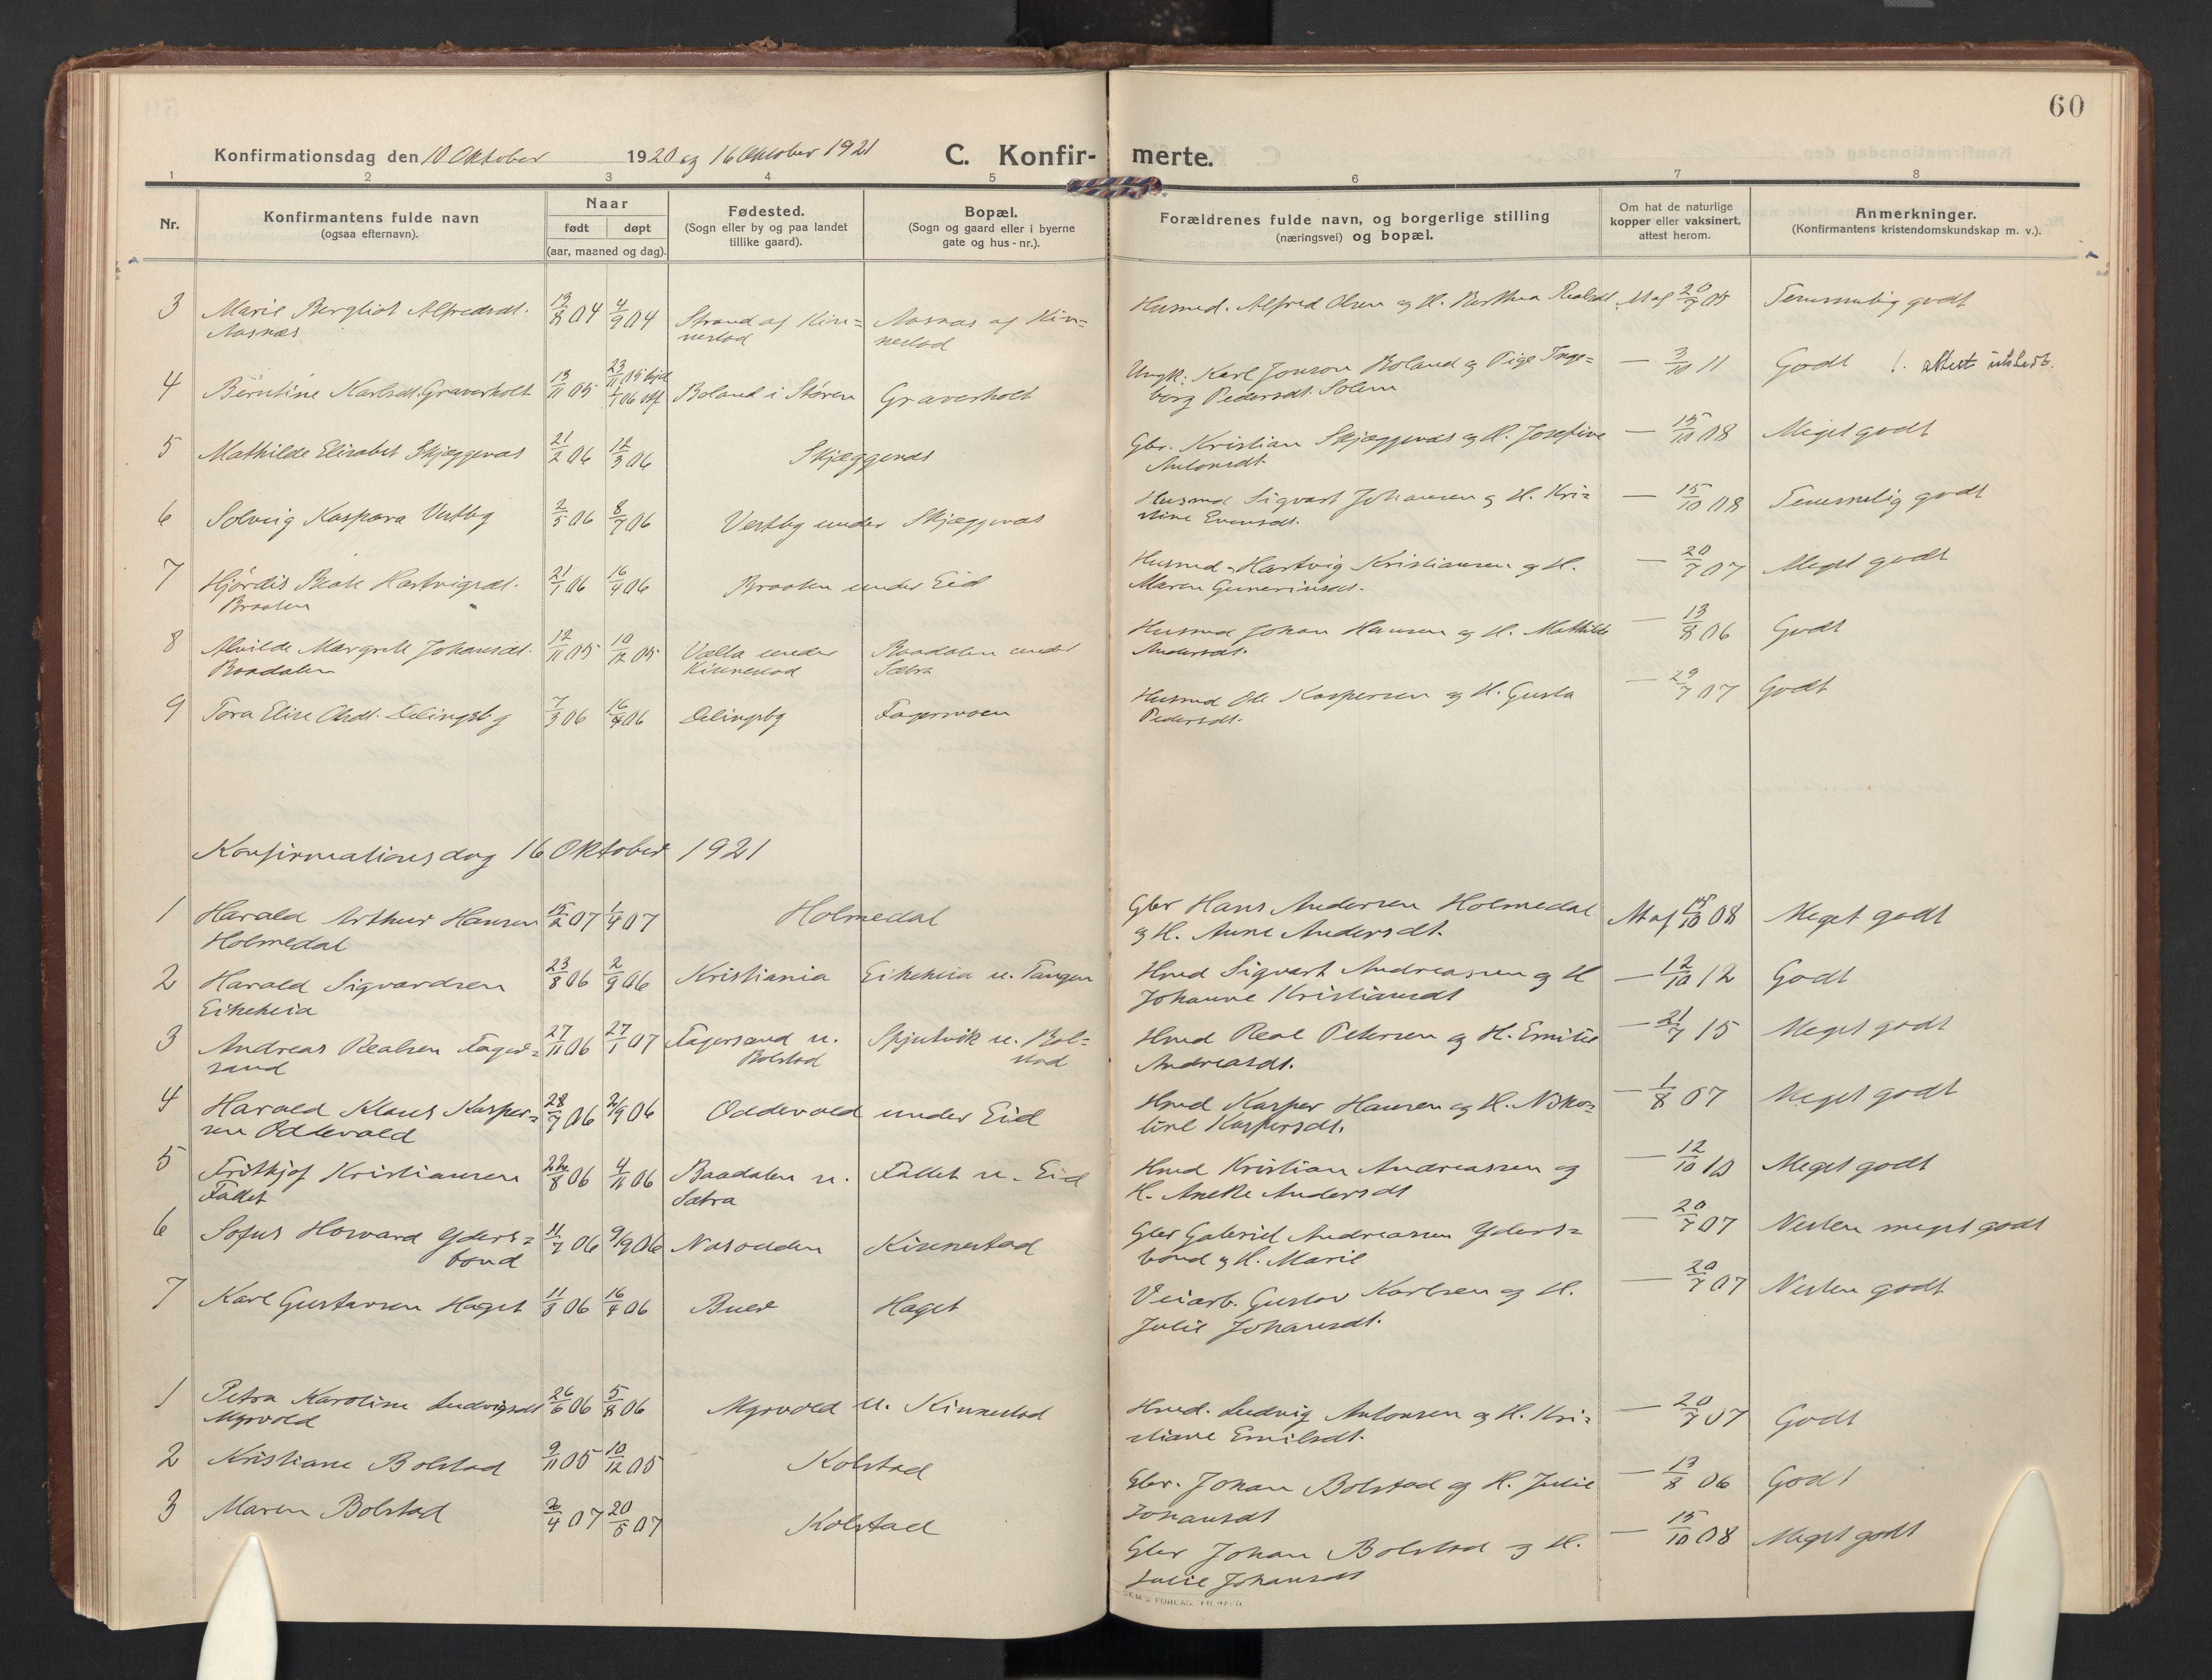 60
Konfirmationsdag den 10 Oktober 1920 og 16 Oktober 1921 C. Konfir- merte.
1 2 3 4 5 6 7 8
Nr.
Konfirmantens fulde navn
(ogsaa efternavn).
Naar
født døpt
(aar, maaned og dag).
Fødested.
(Sogn eller by og paa landet
tillike gaard).
Bopæl.
(Sogn og gaard eller i byerne
gate og hus-nr.).
Forældrenes fulde navn, og borgerlige stilling
(næringsvei) og bopæl.
Om hat de naturlige
kopper eller vaksinert,
attest herom.
Anmerkninger.
(Konfirmantens kristendomskundskap m. v.).
3 Marie Bergliot Alfredsdt. 04 4/9 04 Strand af Kin= Aasnæs af Kin= Husmd. Alfred Olsen og H. Berthea Realsdt Att af 20/7 05 Temmelig godt
Aasnæs nestad nestad
4 Berntine Karlsdt. Graverholt 13/11 05 23/11 05 hjd 1/1 06 stf Boland i Støren Graverholt Ungk. Karl Jonson Boland og Pige Inge= — 3/10 11 Godt ! attest utstedt.
borg Pedersdt. Solem
5 Mathilde Elisabet Skjæggenes 21/2 06 12/3 06 Skjæggenes Gbr. Kristian Skjæggenes og H. Josefine — 15/10 08 Meget godt
Antonsdt
6 Solveig Kaspara Vestby 2/5 06 8/7 06 Vestby under Skjæggenæs Husmd Sigvart Johansen og H. Kri= — 15/10 08 Temmelig godt
stine Evensdt.
7 Hjørdis Beate Hartvigsdt. 21/1 06 16/4 06 Braaten under Eid Husmd. Hartvig Kristiansen og H. — 20/7 07 Meget godt
Braaten Maren Guneriusdt.
8 Alvilde Margrete Johansdt. 12/11 05 10/12 05 Vælta under Baadalen under Husmd Johan Hansen og H. Mathilde — 13/8 06 Godt
Baadalen Kinnestad Sætra Andersdt.
9 Tora Elise Olsdt. Delingsby 7/3 06 16/4 06 Delingsby Fagermoen Husmd Ole Kaspersen og H. Gusta — 29/7 07 Godt
Pedersdt.
Konfirmationsdag 16 Oktober 1921
1 Harald Arthur Hansen 15/2 07 1/4 07 Holmedal Gbr Hans Andersen Holmedal Att af 15/10 08 Meget godt
Holmedal og H. Anne Andersdt.
2 Harald Sigvardsen 23/8 06 2/9 06 Kristiania Eikeheia u. Tangen Hmd Sigvart Andreassen og H — 12/10 12 Godt
Eikeheia Johanne Kristiansdt
3 Andreas Realsen Fager= 27/11 06 27/1 07 Fagersand u. Spjutvik u. Bol= Hmd Real Petersen og H. Emilie — 21/7 15 Meget godt
sand Bolstad stad Andreasdt.
4 Harald Klaus Kasper= 28/7 06 2/9 06 Oddevold under Eid Hmd Kasper Hansen og H. Niko= — 1/8 07 Meget godt
sen Oddevald line Kaspersdt.
5 Fritkjof Kristiansen 22/8 06 4/11 06 Baadalen u. Fallet u. Eid Hmd Kristian Andreassen og — 12/10 10 Meget godt
Fallet Sætra H. Anette Andersdt
6 Sofus Howard Yders= 11/7 06 9/9 06 Nesodden Kinnestad Gbr Gabriel Andreassen Yders= — 20/7 07 Nesten meget godt
bond bond og H. Marie
7 Karl Gustavsen Haget 11/3 06 16/4 06 Buer Haget Veiarb. Gustav Karlsen og H. — 20/7 07 Nesten godt
Julie Johansdt.
1 Petra Karoline Ludvigsdt 26/6 06 5/8 06 Myrvold u. Kinnestad Hmd. Ludvig Antonsen og H. Kri= — 20/7 07 Godt
Myrvold stiane Emilsdt.
2 Kristiane Bolstad 9/11 05 10/12 05 Kolstad Gbr. Johan Bolstad og H. Julie — 13/8 06 Godt
Johansdt
3 Maren Bolstad 2/4 07 20/5 07 Kolstad Gbr Johan Bolstad og H. — 15/10 08 Meget godt
Julie Johansdt